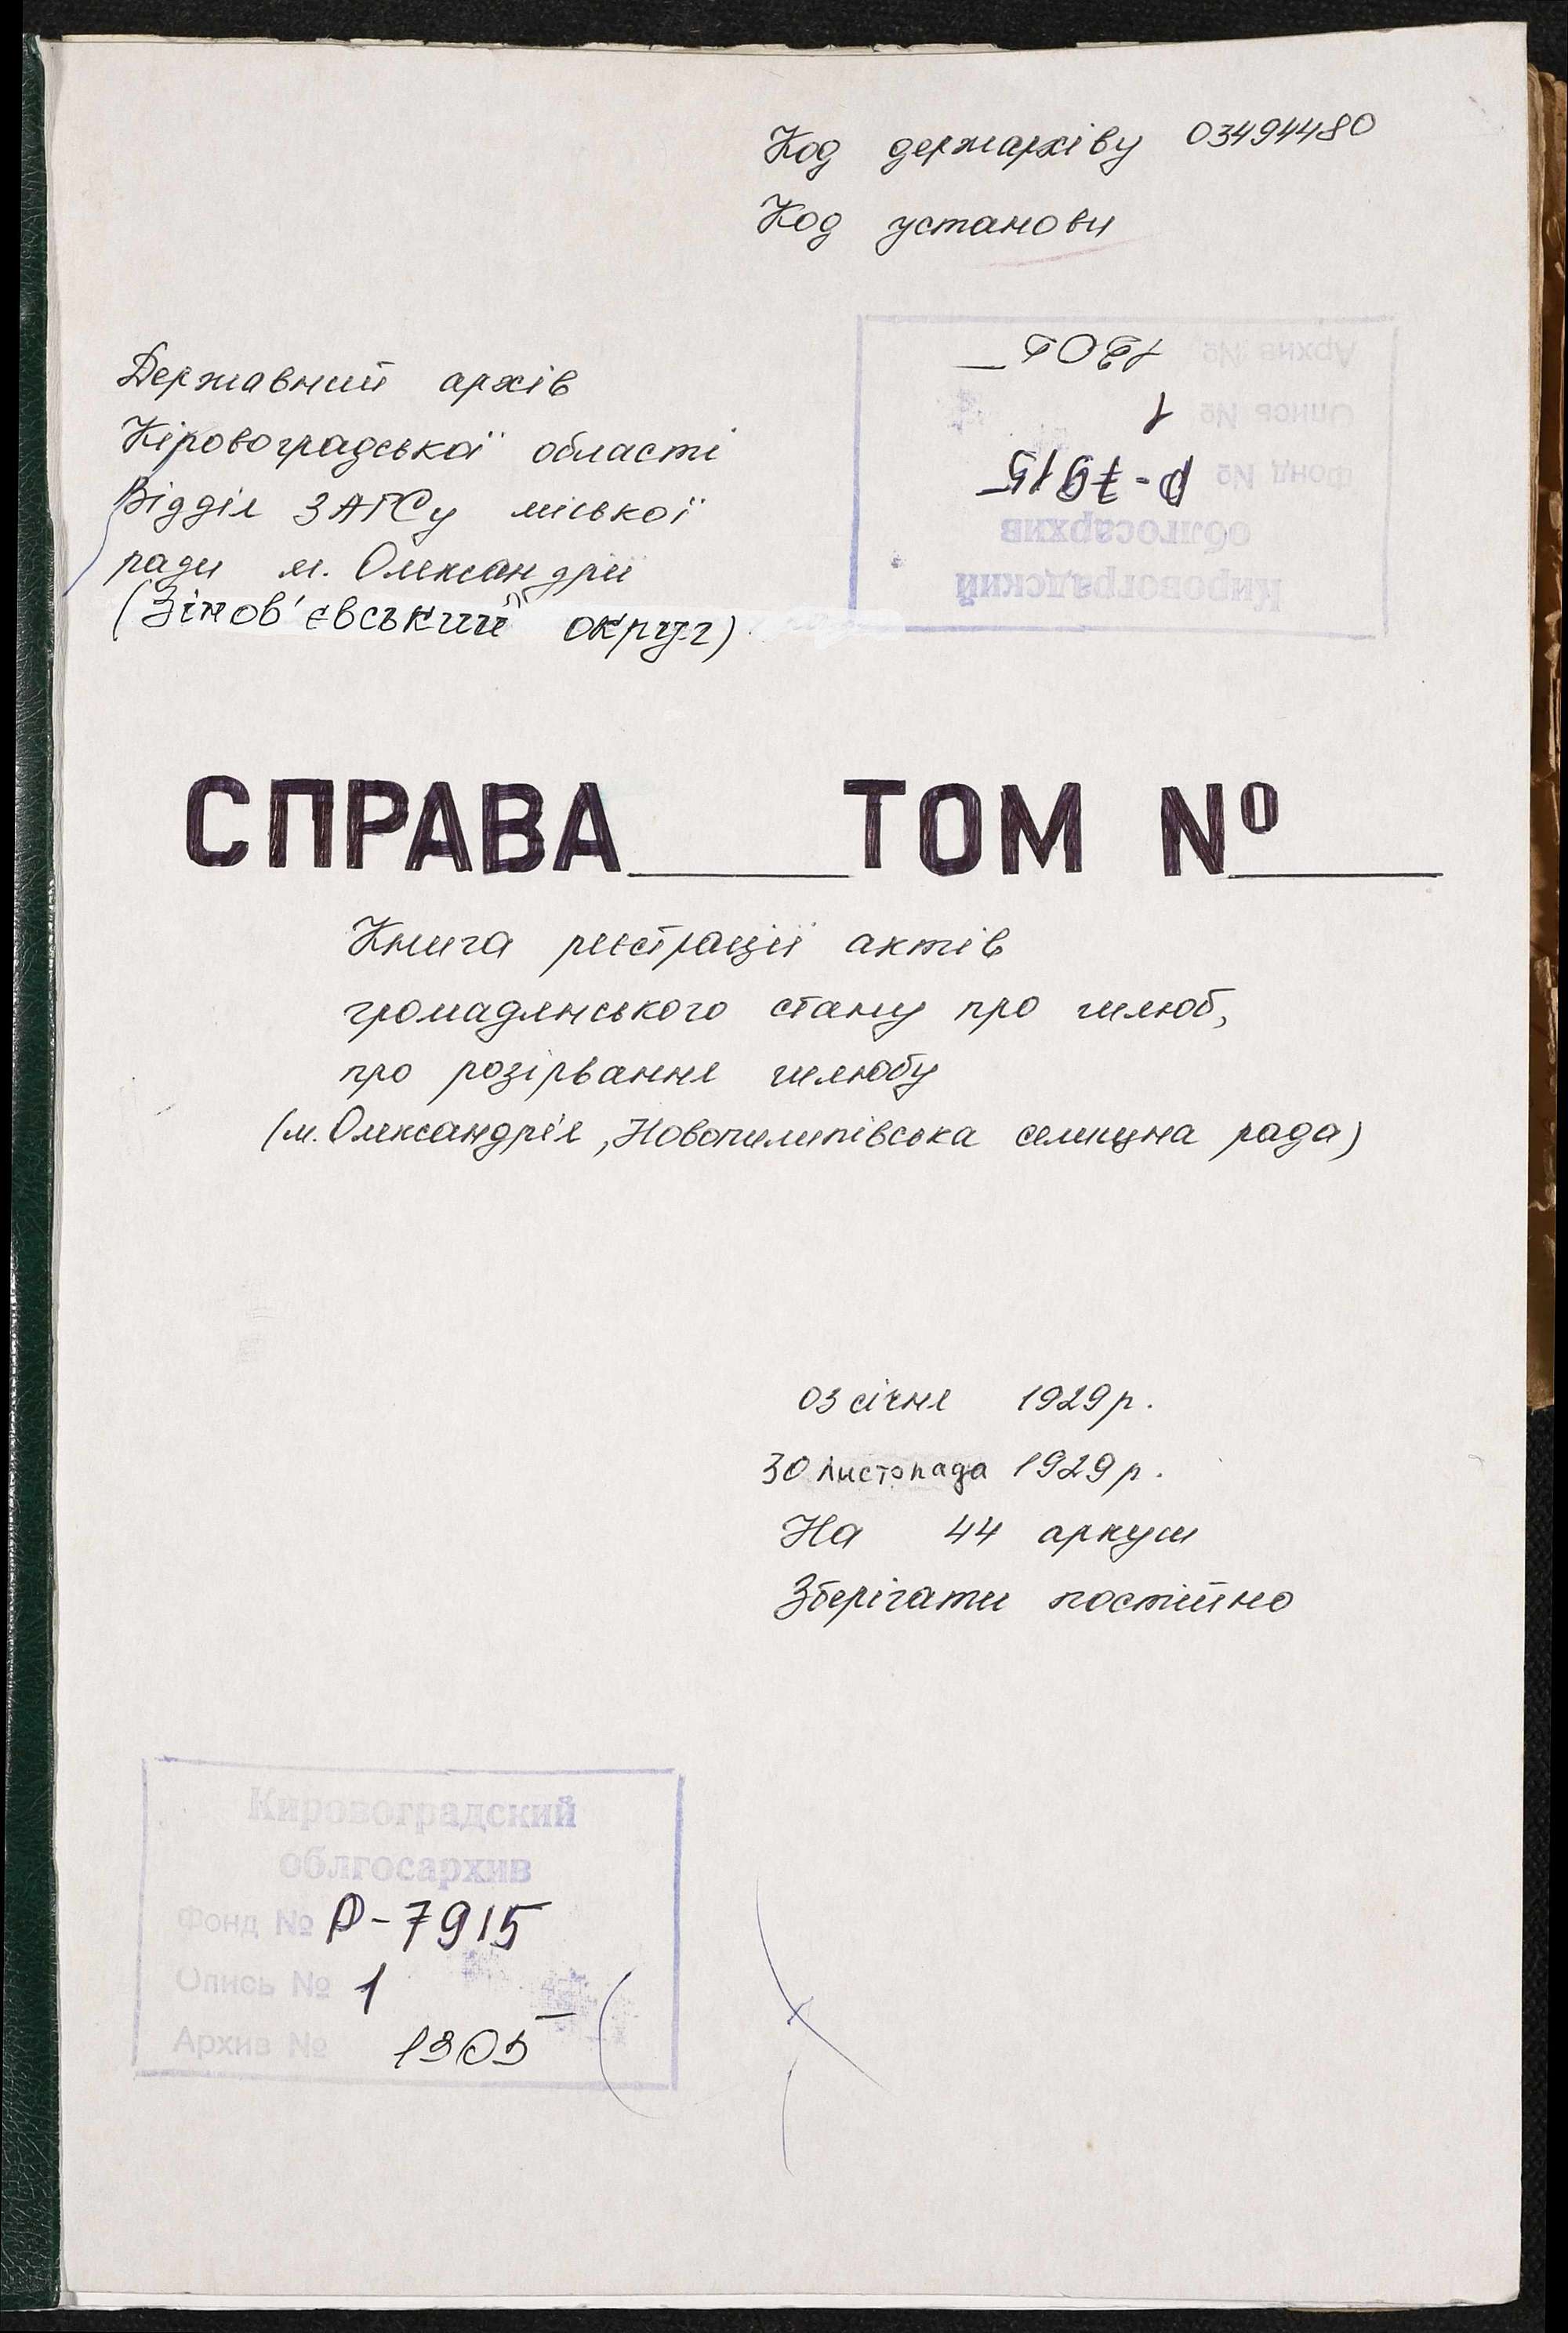 Код держархіву 03494480
Код установи
Державний архів
Кіровоградської області
Відділ ЗАГСу міської
ради м. Олександрії
(Зінов'євський округ)
Кировоградский
облгосархив
Фонд № Р-7915
Опись № 1
Архив № 1305
СПРАВА____ТОМ №____
Книга реєстрації актів
громадянського стану про шлюб,
про розірвання шлюбу
(м. Олександрія, Новопилипівська селищна рада)
03 січня 1929 р.
30 листопада 1929 р.
На 44 аркуш
Зберігати постійно
Кировоградский
облгосархив
Фонд № Р-7915
Опись № 1
Архив № 1305